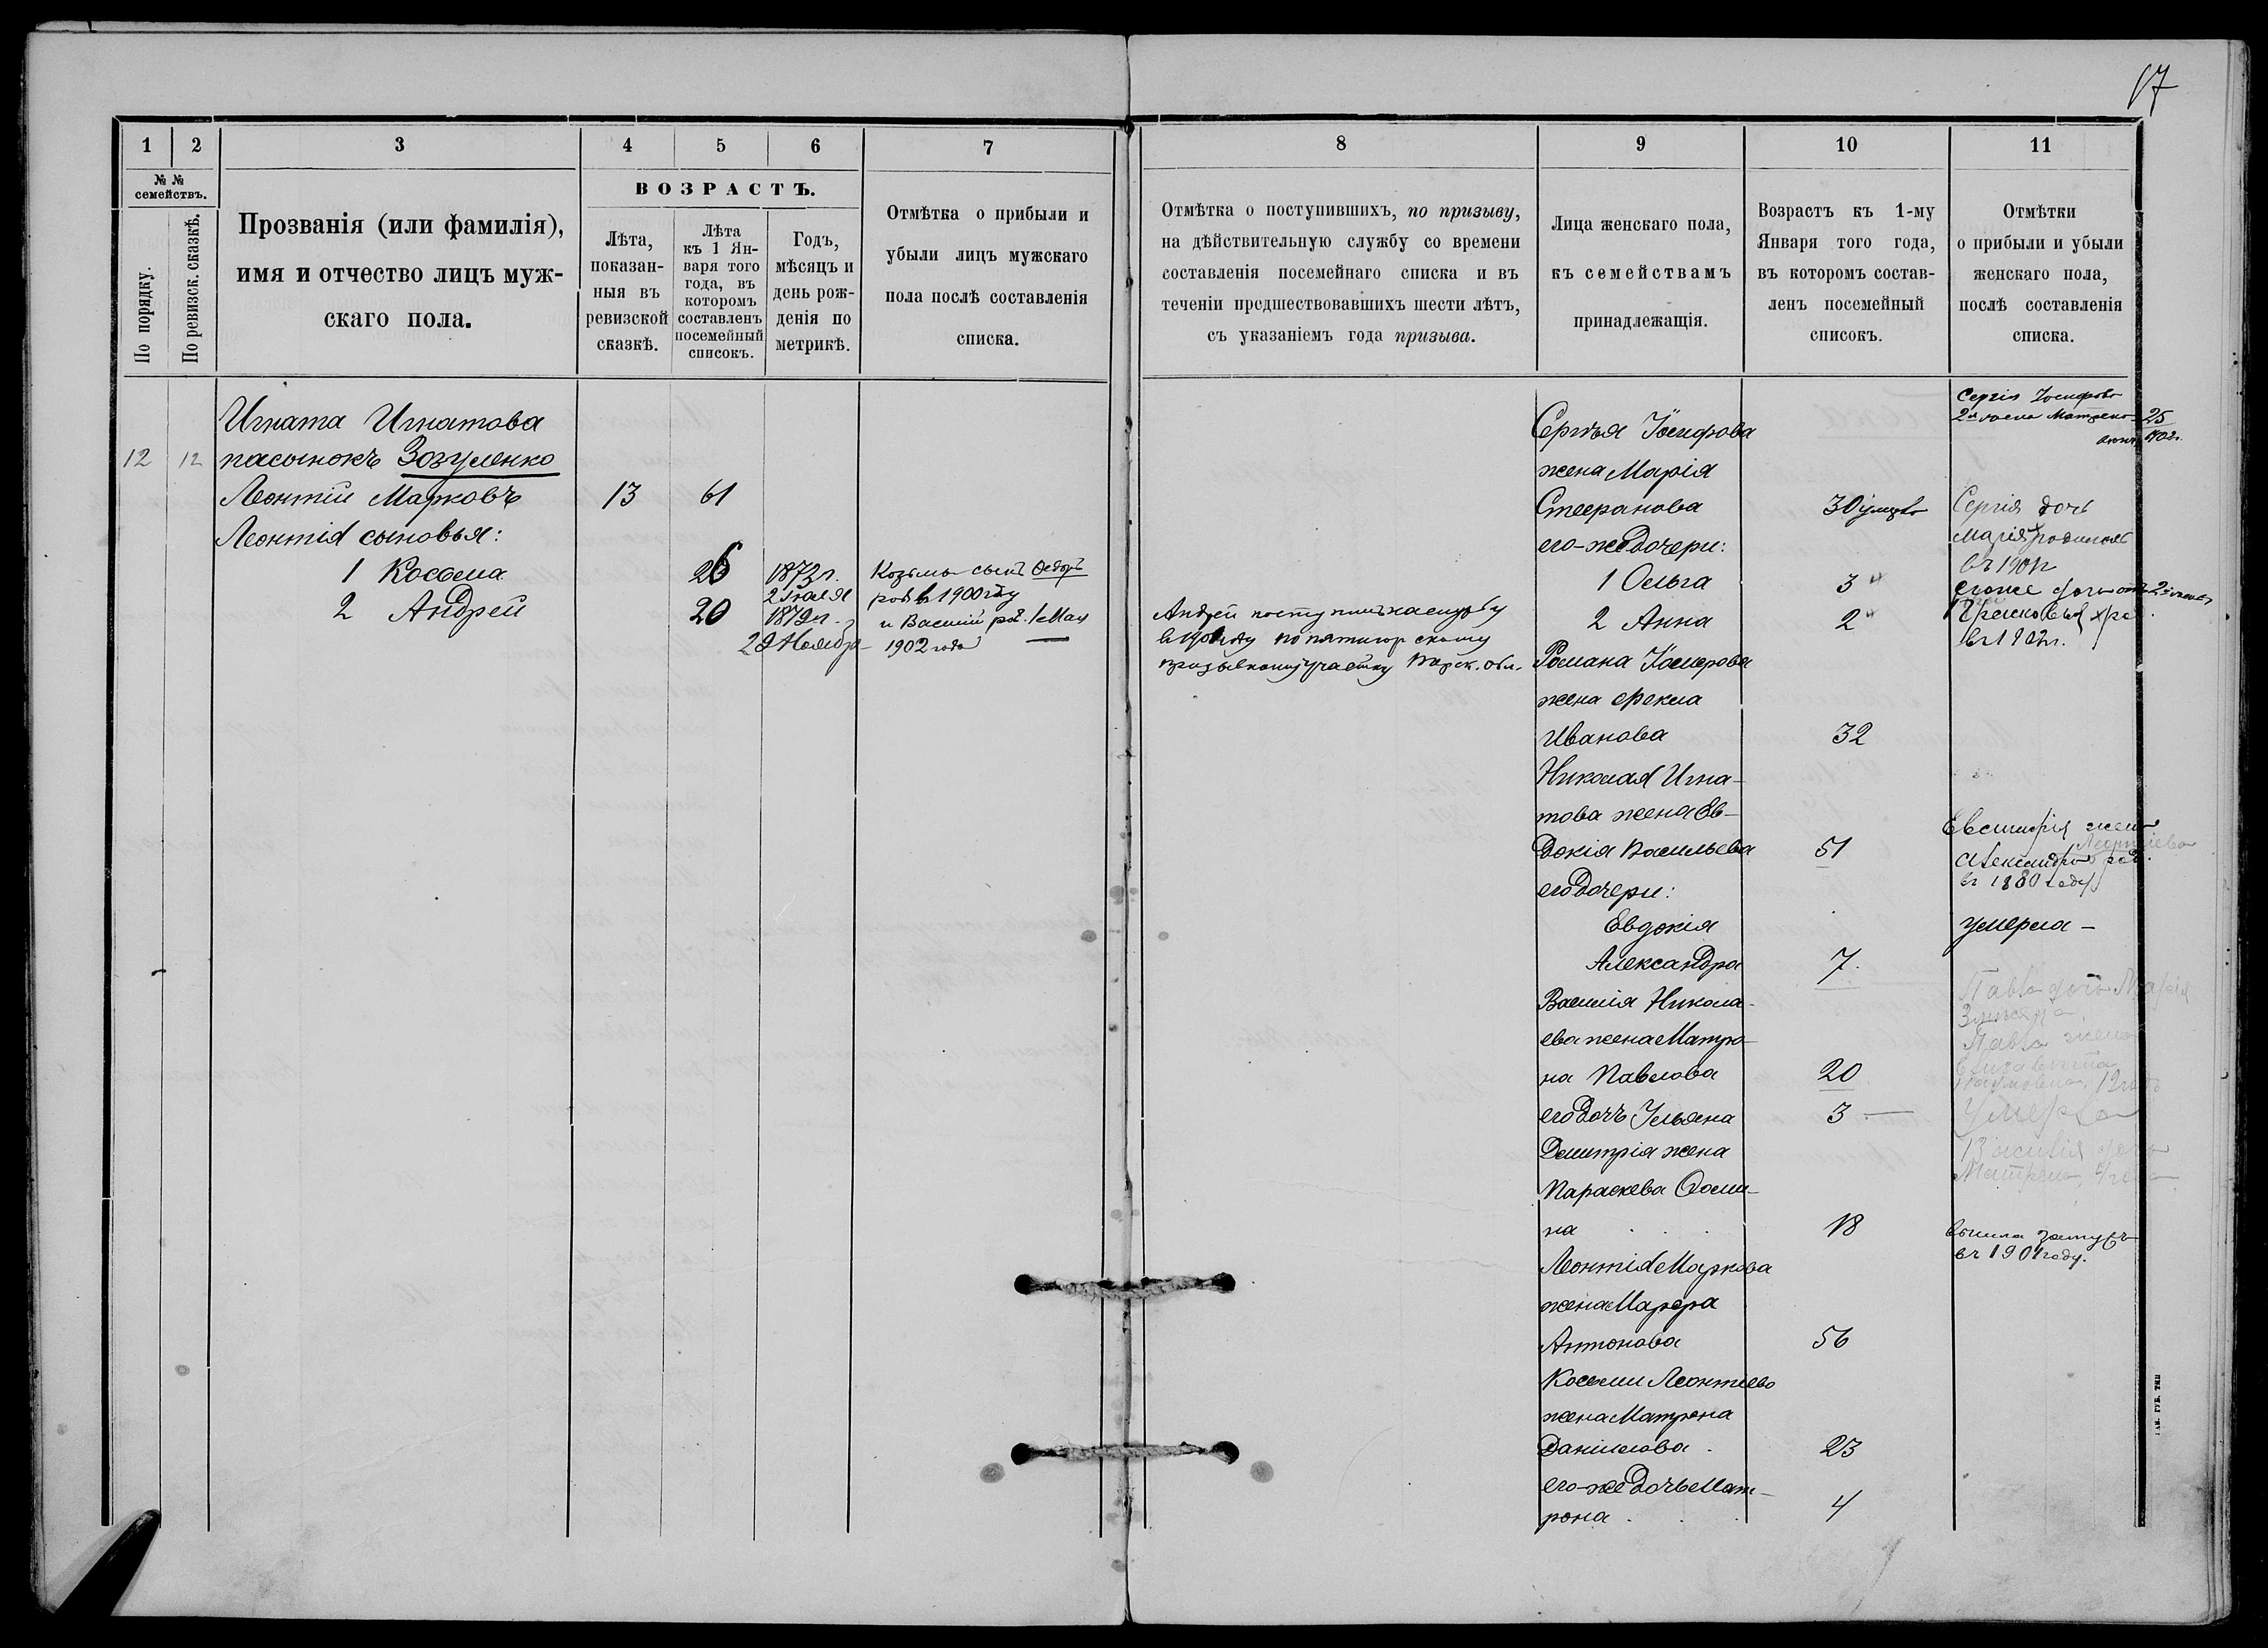 17
1
2
3
4
5
6
7
№ №
семействъ.
По порядку.
По ревизск. сказкѣ.
Прозванія (или фамилія),
имя и отчество лицъ муж-
скаго пола.
ВОЗРАСТЪ.
Лѣта,
показан-
ныя въ
ревизской
сказкѣ.
Лѣта
къ 1 Ян-
варя того
года, въ
которомъ
составленъ
посемейный
списокъ.
Годъ,
мѣсяцъ и
день рож-
денія по
метрикѣ.
Отмѣтка о прибыли и
убыли лицъ мужскаго
пола послѣ составленія
списка.
Игната Игнатова
12 12 пасынокъ Зозуленко
Леонтій Марковъ 13 61
Леонтія сыновья:
1 Косьма 26 1873 г.
2 Іюля
2 Андрей 20 1879 г.
29 Ноября
Козьмы сынъ Ѳедоръ
род в 1900 году
и Василій род. 1 Мая
1902 года
8
9
10
11
Отмѣтка о поступившихъ, по призыву,
на дѣйствительную службу со времени
составленія посемейнаго списка и въ
теченіи предшествовавшихъ шести лѣтъ,
съ указаніемъ года призыва.
Лица женскаго пола,
къ семействамъ
принадлежащія.
Возрастъ къ 1-му
Января того года,
въ которомъ состав-
ленъ посемейный
списокъ.
Отмѣтки
о прибыли и убыли
женскаго пола,
послѣ составленія
списка.
Андрей поступилъ на службу
в году по пятигорскому
призывному участку обл.
Сергѣя Іосифова
жена Марія
Стефанова 30
его-же дочери:
1 Ольга 3
2 Анна 2
Романа Іосифова
жена Фекла
Иванова 32
Николая Игна-
това жена Ев-
докія Васильева 51
его дочери:
Евдокія
Александра 7
Василія Никола-
ева жена Матро-
на Павлова 20
его дочь Ульяна 3
Димитрія жена
Параскева Фоми-
на 18
Леонтія Маркова
жена Марфа
Антонова 56
Косьмы Леонтіева
жена Матрона
Даніилова 23
его-же дочь Мат-
рона 4
Сергія Іосифова
2я жена Матрена 25
1902 г.
Сергія дочь
Марія родилась
въ 1901 г
его же дочь от 2й жены
род.
въ 1902 г.
жена
Леонтіева
Александра род.
въ 1880 году
умерла -
Павла дочь Марія
Павла жена
Елизавета
Умерла
Василія дочь
Матрена, 4 года
вышла замужъ
въ 1901 году.